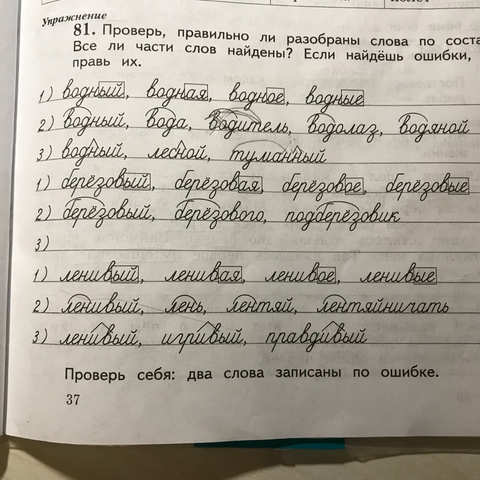 Упражнение
81. Проверь, правильно ли разобраны слова по соста
Все ли части слов найдены? Если найдёшь ошибки,
правь их.
1) водный, водная, водное, водные
2) водный, вода, водитель, водолаз, водяной
3) водный, лесной, туманный
1) берёзовый, берёзовая берёзовое, берёзовые
2) берёзовый, берёзового, подберёзовик
3)
1) ленивый, ленивая, ленивое, ленивые
2) ленивый, лень, лентяй, лентяйничать
3) ленивый, игривый, правдивый
Проверь себя: два слова записаны по ошибке.
37